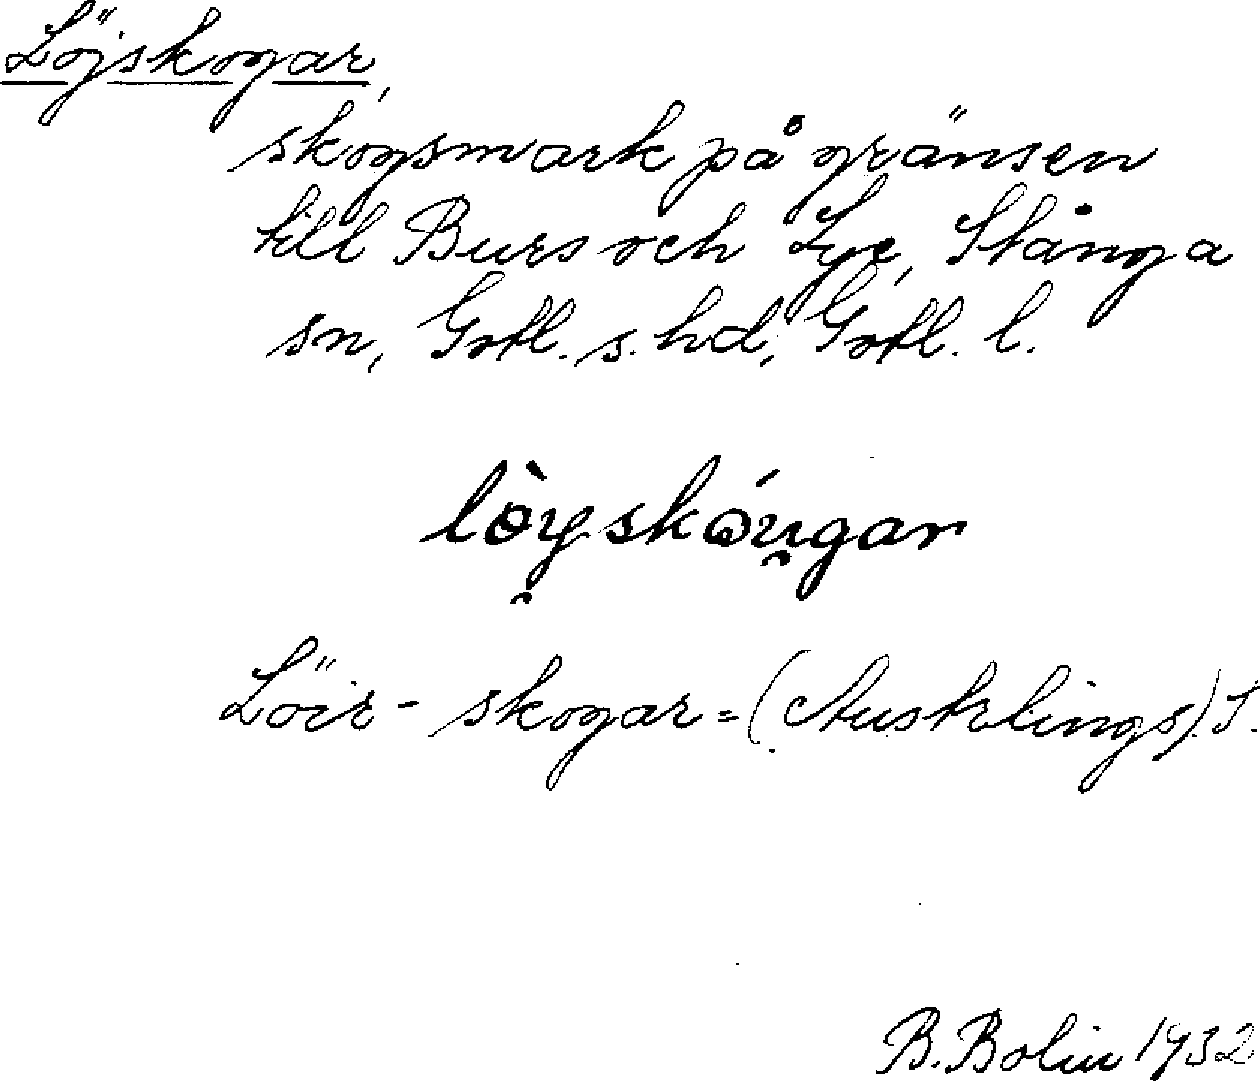 Löjskogar,
skogsmark på gränsen
till Burs och Lye, Stånga
sn, Gotl. s. hd, Gotl. l.
lòy̯skóu̯gar
Löir - skogar = (Austrlings) S.
B. Bolin 1932